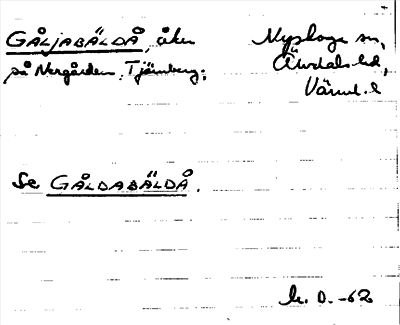 GÅLJABÄLDÅ, åker
på Norgården, Tjärnberg;
Nyskoga sn,
Älvdals hd,
Värml. l
Se GÅLDABÄLDÅ.
0. -62